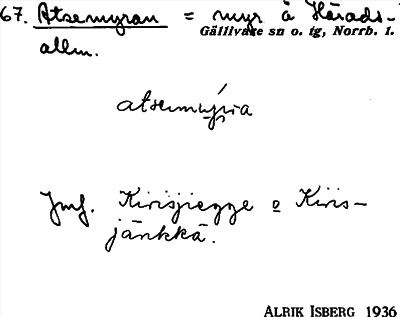 67. Atsemyran = myr å Härads-
Gällivare sn o. tg, Norrb. l.
allm.
atsemyra
Jmf. Kirisjiegge o Kiris-
jänkkä.
ALRIK ISBERG 1936